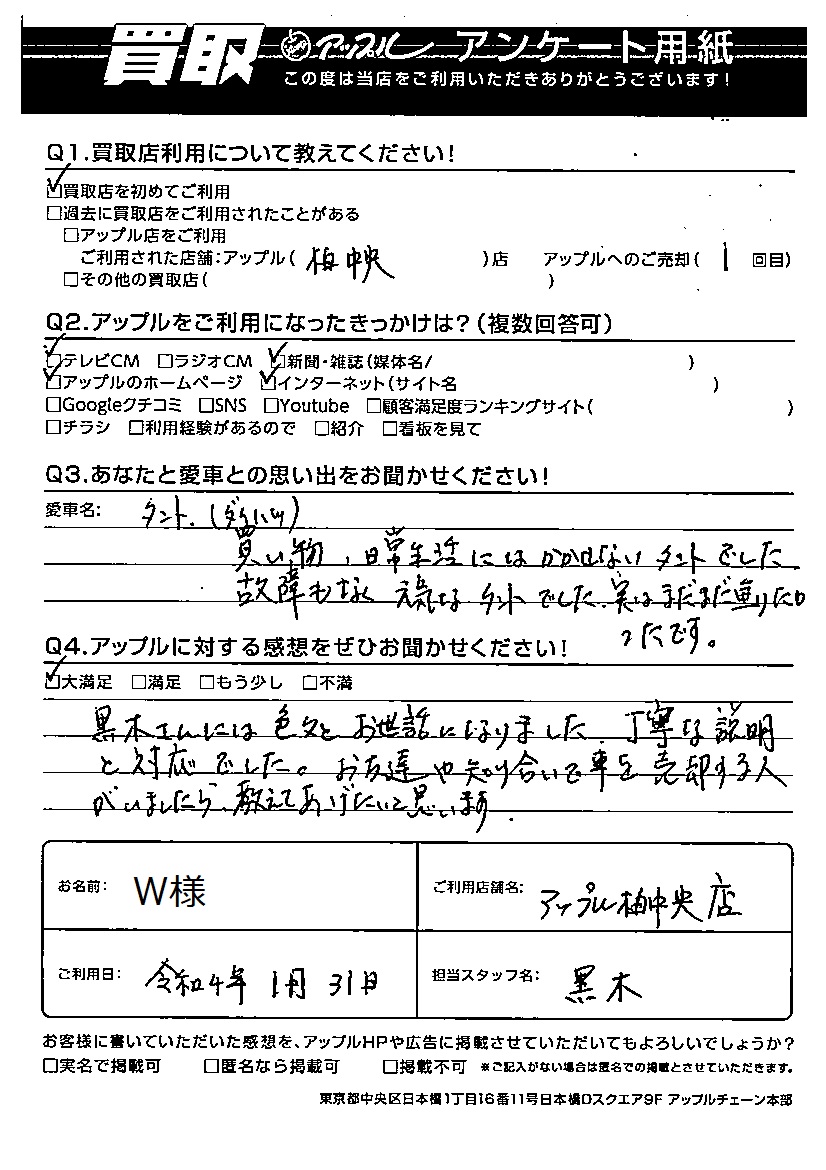 買取 アップル アンケート用紙
この度は当店をご利用いただきありがとうございます!
Q1.買取店利用について教えてください!
☑買取店を初めてご利用
□過去に買取店をご利用されたことがある
□アップル店をご利用
ご利用された店舗:アップル( 柏中央 )店 アップルへのご売却( 1 回目)
□その他の買取店( )
Q2.アップルをご利用になったきっかけは?(複数回答可)
☑テレビCM □ラジオCM ☑新聞・雑誌(媒体名/ )
☑アップルのホームページ ☑インターネット(サイト名 )
□Googleクチコミ □SNS □Youtube □顧客満足度ランキングサイト( )
□チラシ □利用経験があるので □紹介 □看板を見て
Q3.あなたと愛車との思い出をお聞かせください!
愛車名: タント.(ダイハツ)
買い物、日常生活にはかかせないタントでした.
故障もなく元気なタントでした.実はまだまだ乗りたか
ったです。
Q4.アップルに対する感想をぜひお聞かせください!
☑大満足 □満足 □もう少し □不満
黒木さんには色々とお世話になりました.丁寧な説明
と対応でした。お友達や知り合いで車を売却する人
がいましたら、教えてあげたいと思います.
お名前: W様 ご利用店舗名: アップル柏中央店
ご利用日: 令和4年 1月 31日 担当スタッフ名: 黒木
お客様に書いていただいた感想を、アップルHPや広告に掲載させていただいてもよろしいでしょうか?
□実名で掲載可 □匿名なら掲載可 □掲載不可 ※ご記入がない場合は匿名での掲載とさせていただきます。
東京都中央区日本橋1丁目16番11号日本橋Dスクエア9F アップルチェーン本部